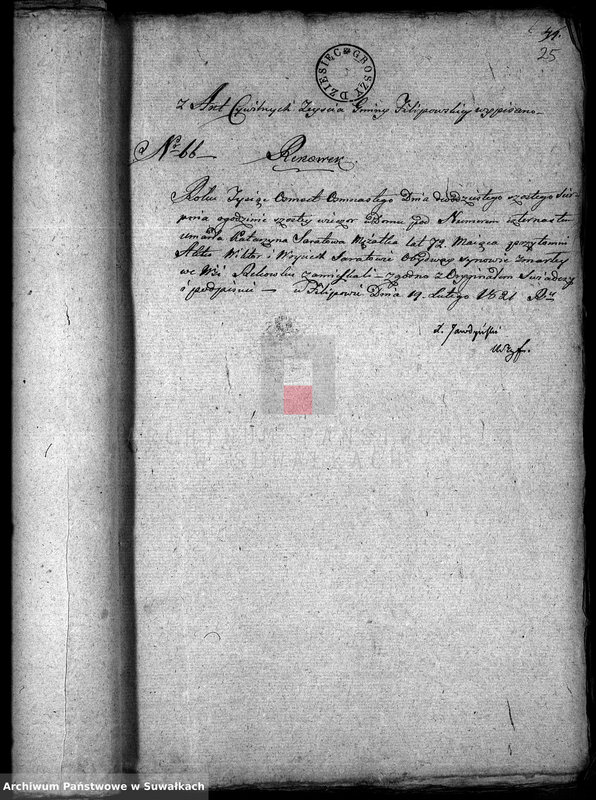 25
DZIESIĘC GROSZY
Z Akt Cywilnych Zeyscia Gminy Filipowskiey wypisano
No 66
Roku Tysiąc Osmset Osmnastego Dnia dwódziestego szostego Sier-
pnia o godzinie szostey wieczor w Domu pod Numerem czternastu
umarła Katarzyna Saratowa Mężatka lat 72. Maiąca przytomni
Aktu Wiktor i Woyciech Saratowie Obydway synowie zmarłey
we Wsi zamięszkali – zgodno z Oryginałem Swiadczę
i podpisuię — w Filipowie Dnia 19. Lutego 1821 Ru
Archiwum Państwowe w Suwałkach